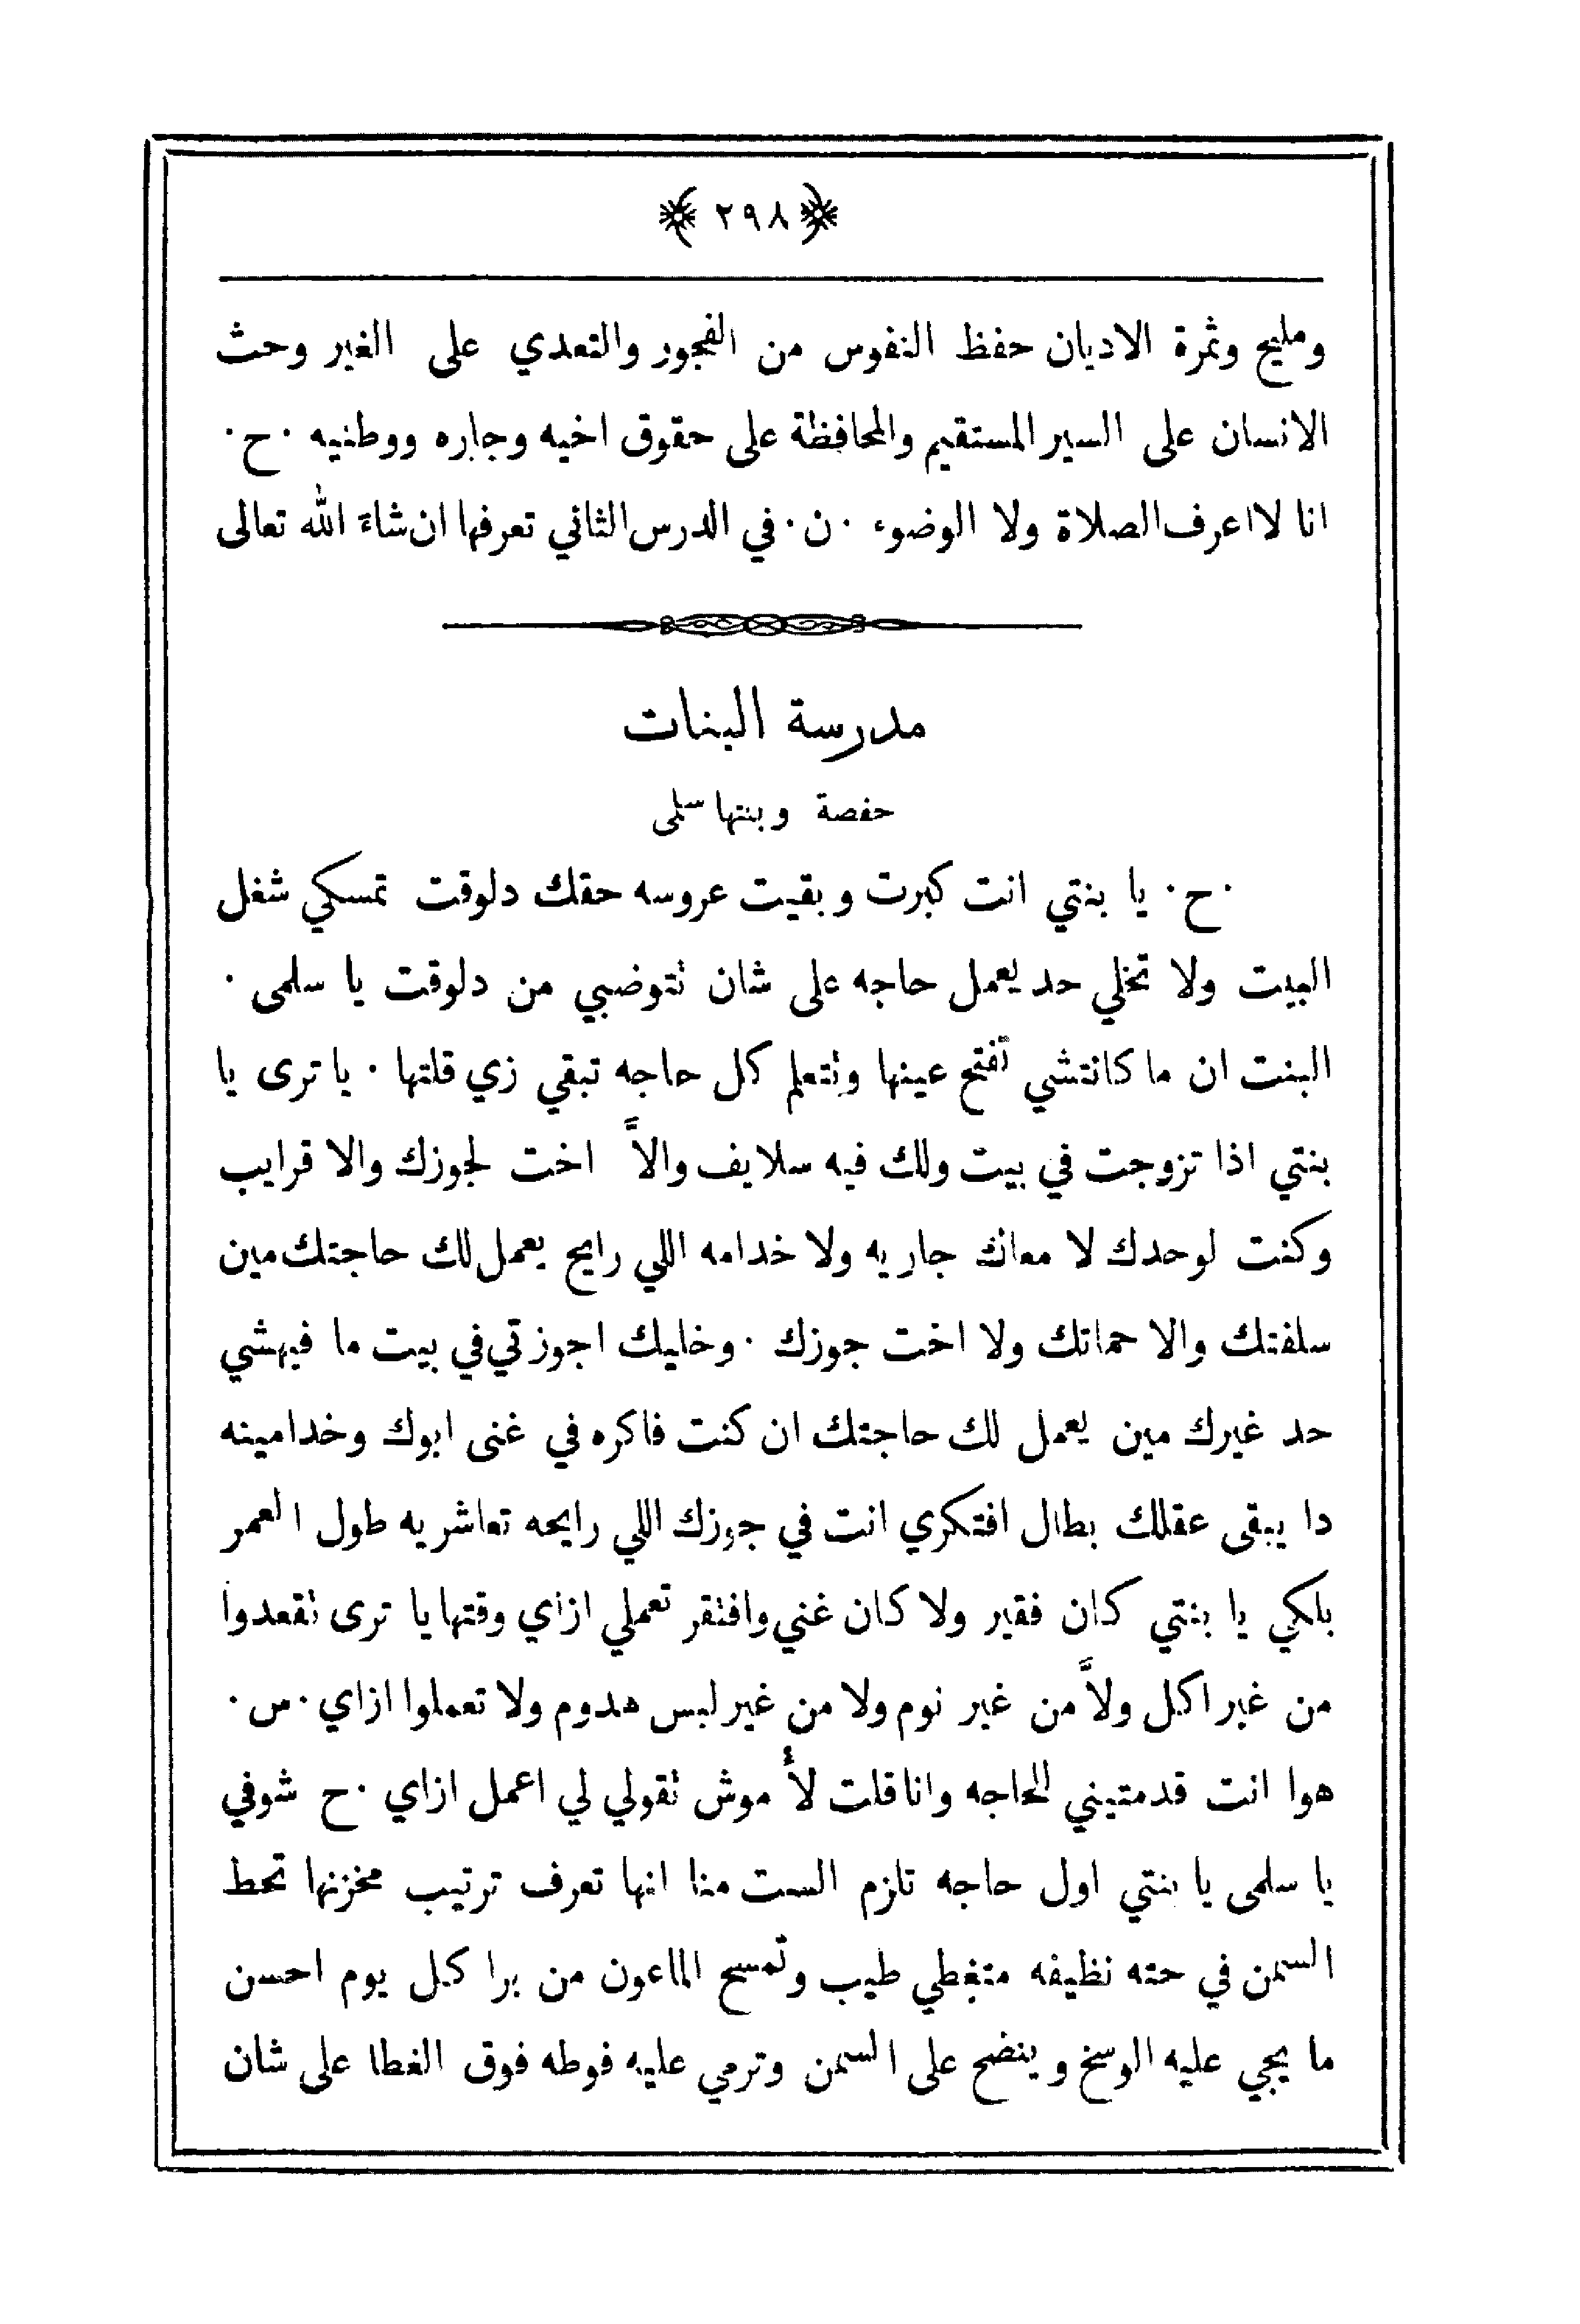 ٢٩٨
ومليح وثمرة الاديان حفظ النفوس من الفجور والتعدي على الغير وحث
الانسان على السير المستقيم والمحافظة على حقوق اخيه وجاره ووطنيه ٠ح٠
انا لا اعرف الصلاة ولا الوضوء ٠ن٠ في الدرس الثاني تعرفها ان شاءَ الله تعالى
مدرسة البنات
حفصة وبنتها سلمى
٠ح٠ يا بنتي انت كبرت وبقيت عروسه حقك دلوقت تمسكي شغل
البيت ولا تخلي حد يعمل حاجه على شان تتوضبي من دلوقت يا سلمى ٠
البنت ان ما كانتشي تفتح عينها ونتعلم كل حاجه تبقي زي قلتها ٠ يا ترى يا
بنتي اذا تزوجت في بيت ولك فيه سلايف والاَّ اخت لجوزك والا قرايب
وكنت لوحدك لا معاك جاريه ولا خدامه اللي رايح يعمل لك حاجتك مين
سلفتك والا حماتك ولا اخت جوزك ٠ وخليك اجوزتي في بيت ما فيهشي
حد غيرك مين يعمل لك حاجتك ان كنت فاكره في غنى ابوك وخدامينه
دا يبقى عقلك بطال افتكري انت في جوزك اللي رايحه تعاشريه طول العمر
بلكي يا بنتي كان فقير ولا كان غني وافتقر تعملي ازاي وقتها يا ترى نقعدوا
من غير اكل ولاَّ من غير نوم ولا من غير لبس هدوم ولا تعملوا ازاي ٠س٠
هوا انت قدمتيني للحاجه وانا قلت لأ موش نقولي لي اعمل ازاي ٠ح شوفي
يا سلمى يا بنتي اول حاجه تلزم الست منا انها تعرف ترتيب مخزنها تحط
السمن في حته نظيفه متغطي طيب وتمسح الماعون من برا كل يوم احسن
ما يجي عليه الوسخ وينضح على السمن وترمي عليه فوطه فوق الغطا على شان